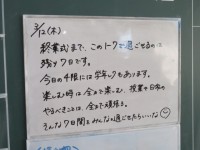 3/12(木)
終業式まで、このクラスで過ごせるのは
残り7日です。
今日の4限には学年レクもあります。
楽しむ時は全力で楽しむ、授業や日常の
やるべきことは、全力で頑張る。
そんな7日間をみんなと過ごせたらいいな